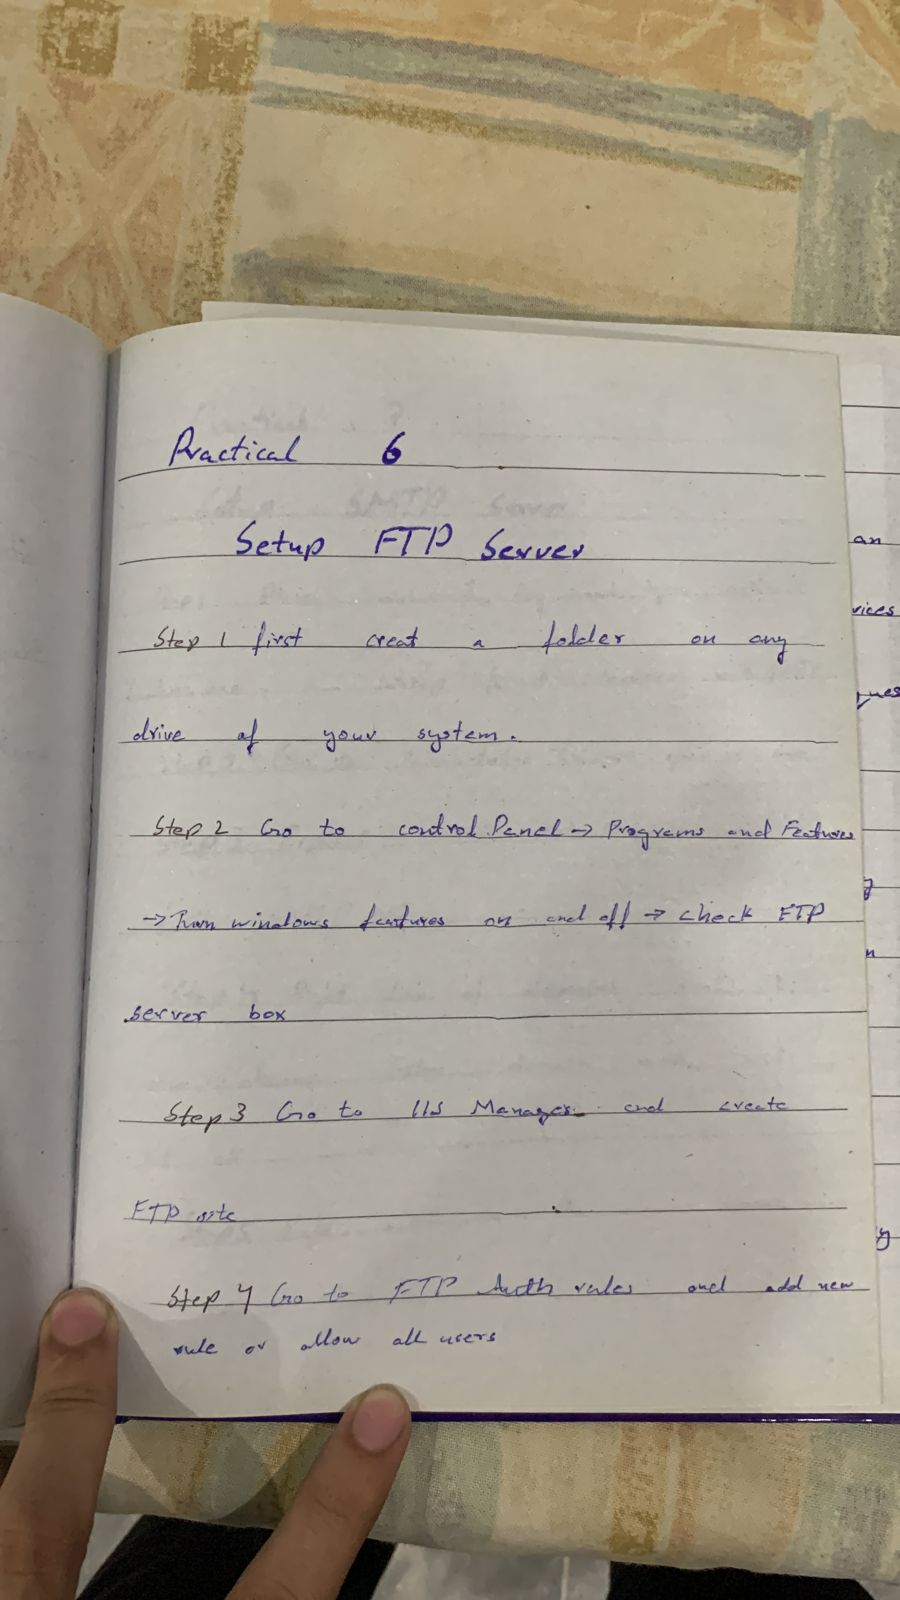 Practical 6
Setup FTP Server
Step 1 first creat a folder on any
drive of your system.
Step 2 Go to control Panel → Programs and Features
→ Turn windows features on and off → check FTP
server box
Step 3 Go to IIS Manager and create
FTP site
Step 4 Go to FTP Auth rules and add new
rule or allow all users
an
vices
ques
g
n
y